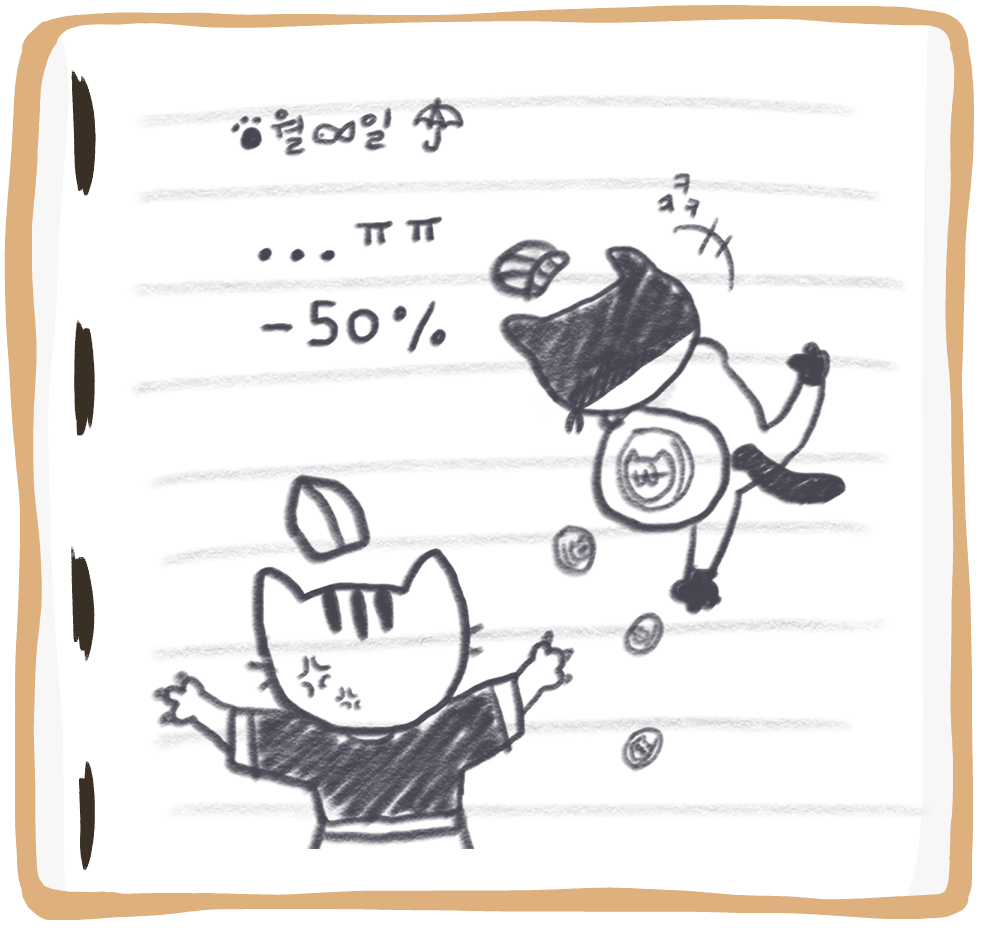 월 일
... ㅠㅠ
-50%
ㅋㅋㅋ